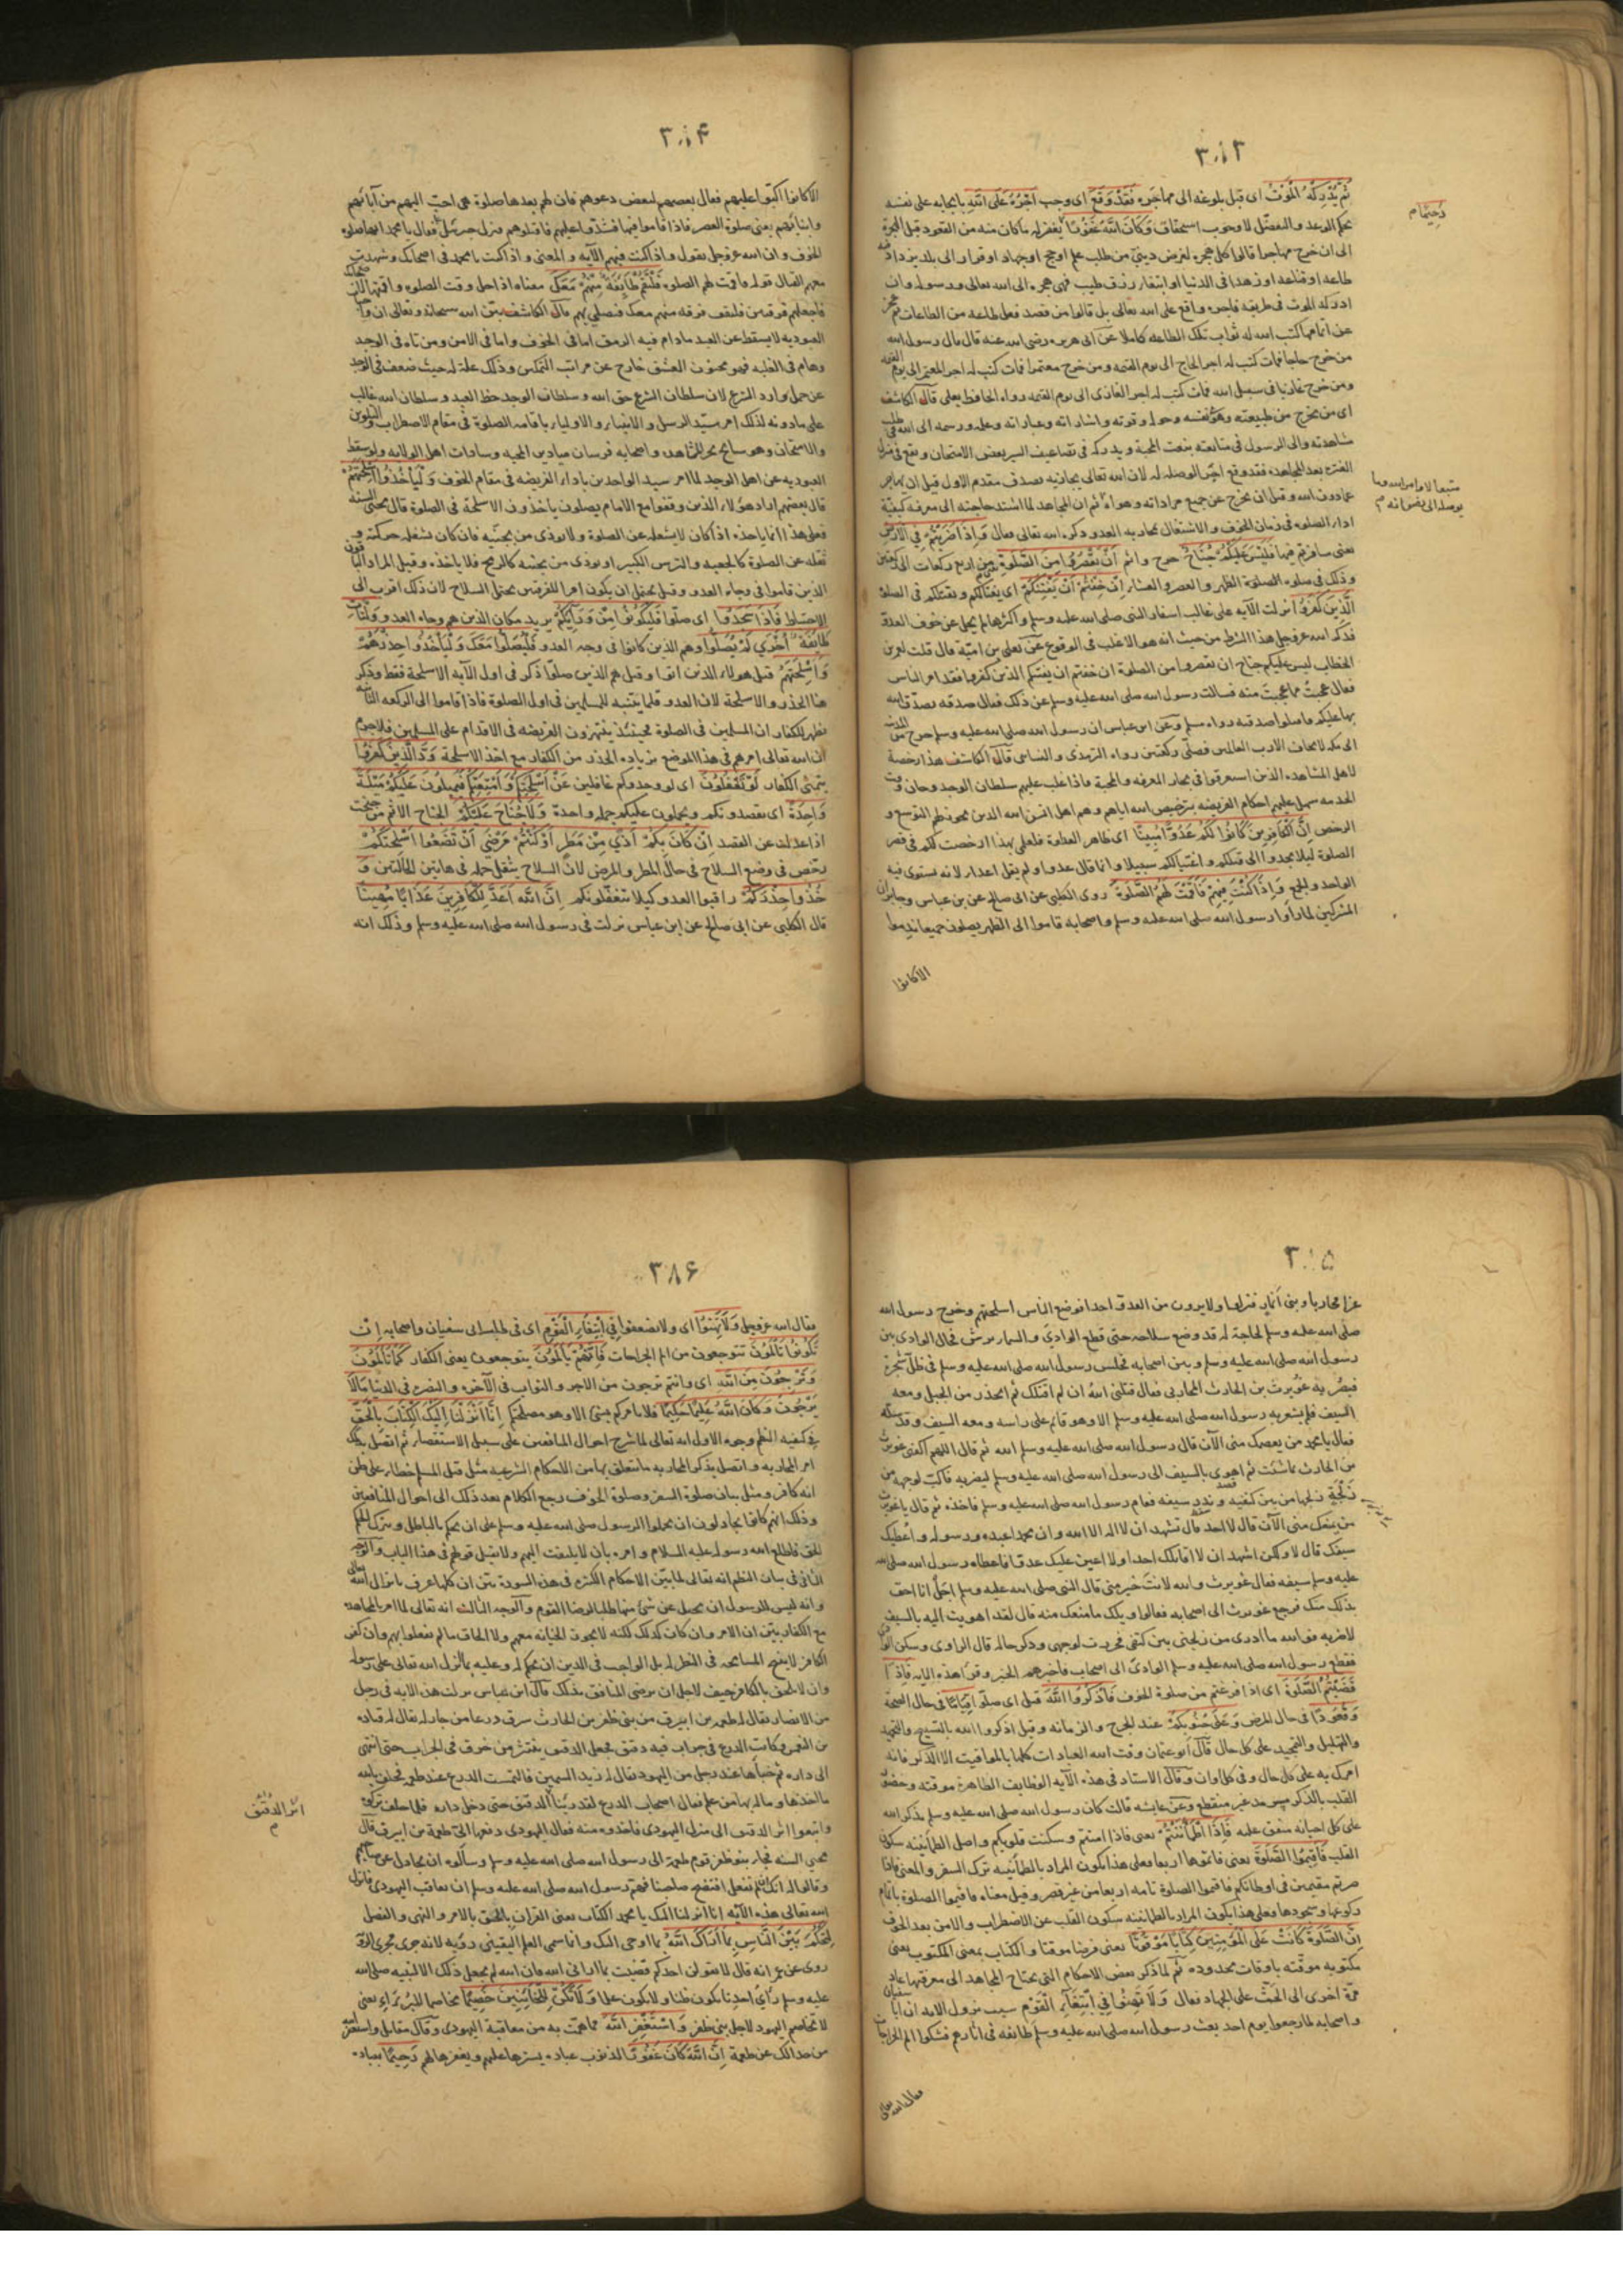 ٣٨٣
ثُمَّ يُدْرِكْهُ الْمَوْتُ اى قبل بلوغه الى مهاجره فَقَدْ وَقَعَ اى وجب اَجْرُهُ عَلَى اللهِ بايجابه على نفسه
بحكم الوعد والتفضل لا وجوب استحقاق وَكَانَ اللهُ غَفُورًا يغفر له ما كان منه من القعود قبل الهجرة
رَحِيمًا م
الى ان خرج مهاجرا قالوا كل هجرة لغرض دينى من طلب علم او حج او جهاد او فرار الى بلد يزداد فيه
طاعه او قناعه او زهدا فى الدنيا او ابتغاء رزق طيب فهى هجرة الى الله تعالى ورسوله وان
ادركه الموت فى طريقه فاجره واقع على الله تعالى بل قالوا من قصد فعل طاعه من الطاعات ثم عجز
عن اتمامها كتب الله له ثواب تلك الطاعه كاملا عن ابى هريره رضى الله عنه قال قال رسول الله
من خرج حاجا فمات كتب له اجر الحاج الى يوم القيمه ومن خرج معتمرا فمات كتب له اجر المعتمر الى يوم القيمه
ومن خرج غازيا فى سبيل الله فمات كتب له اجر الغازى الى يوم القيمه رواه الحافظ ابو يعلى قال الكاشف
اى من يخرج من طبيعته وهو نفسه وحوله وقوته واشاراته وعباراته وعلمه ورسمه الى الله فى طلب
مشاهدته والى الرسول فى متابعته بنعت المحبة ويدركه فى تضاعيف السير بعض الامتحان
الفتره بعد المجاهده فقد وقع اجر الوصله له لان الله تعالى يجازيه بصدف مقدم الاول قبل ان يهاجر
عما دون الله وقبل ان يخرج عن جميع مراداته وهواه ثم ان المجاهد لما اشتد حاجته الى معرفة كيفية
اداء الصلوه فى زمان الخوف والاشتغال بمحاربه العدو ذكره الله تعالى فقال وَاِذَا ضَرَبْتُمْ فِي الْاَرْضِ
يعنى سافرتم فيها فَلَيْسَ عَلَيْكُمْ جُنَاحٌ حرج واثم اَنْ تَقْصُرُوا مِنَ الصَّلَوةِ من اربع ركعات الى ركعتين
وذلك فى صلوه الصلوة الظهر والعصر والعشاء اِنْ خِفْتُمْ اَنْ يَفْتِنَكُمُ اى يغتالكم ويقتلكم فى الصلوة
الَّذِينَ كَفَرُوا انزلت الآيه على غالب اسفار النبى صلى الله عليه وسلم واكثرها لم يخل عن خوف العدو
فذكر الله عز وجل هذا الشرط من حيث انه هو الاغلب فى الوقوع عن يعلى بن امية قال قلت لعمر بن
الخطاب ليس عليكم جناح ان تقصروا من الصلوة ان خفتم ان يفتنكم الذين كفروا فقد امن الناس
فقال عجبت مما عجبت منه فسالت رسول الله صلى الله عليه وسلم عن ذلك فقال صدقه تصدق الله
بها عليكم فاقبلوا صدقته رواه مسلم وعن ابن عباس ان رسول الله صلى الله عليه وسلم خرج من المدينه
الى مكه لا يخاف الا رب العالمين فصلى ركعتين رواه الترمذى والنسائى قال الكاشف هذا رخصة
لاهل المشاهده الذين استغرقوا فى بحار المعرفه والمحبة فاذا غلب عليهم سلطان الوجد وحان وقت
الخدمه سهل عليهم احكام الفريضه بترخيص الله اياهم وهم اهل الانس
الرخص اِنَّ الْكَافِرِينَ كَانُوا لَكُمْ عَدُوًّا مُبِينًا اى ظاهر العداوة فلعلى بهذا رخصت لكم فى قصر
الصلوة ليلا يجدوا الى قتلكم واغتيالكم سبيلا وانما قال عدوا ولم يقل اعداء لانه يستوى فيه
الواحد والجمع وَاِذَا كُنْتَ فِيهِمْ فَاَقَمْتَ لَهُمُ الصَّلَوةَ روى الكلبى عن ابى صالح عن ابن عباس وجابر ان
المشركين لما راوا رسول الله صلى الله عليه وسلم واصحابه قاموا الى الظهر يصلون جميعا ندموا
الا كانوا
٣٨۴
الا كانوا اكبوا عليهم فقال بعضهم لبعض دعوهم فان لهم بعدها صلوة هى احب اليهم من آبائهم
وابنائهم يعنى صلوة العصر فاذا قاموا فيها فشدوا عليهم فاقتلوهم فنزل جبرئيل فقال يا محمد انها صلوة
الخوف وان الله عز وجل يقول واذا كنت فيهم الآيه والمعنى واذا كنت يا محمد فى اصحابك وشهدت
معهم القتال قوله فاقمت لهم الصلوه فَلْتَقُمْ طَائِفَةٌ مِنْهُمْ مَعَكَ معناه اذا دخل وقت الصلوه
فاجعلهم فرقتين فلتقف فرقه منهم معك فتصلى بهم قال الكاشف بين الله سبحانه وتعالى ان
العبوديه لا يسقط عن العبد ما دام فيه الرمق اما فى الخوف واما فى الامن ومن تاه فى الوجد
وهام فى الغلبه فهو مجنون العشق خارج عن مراتب التمكين وذلك علة له حيث ضعف فى الوجد
عن حمل وارد الشرع لان سلطان الشرع حق الله وسلطان الوجد حظ العبد وسلطان الله غالب
على ما دونه لذلك امر سيد الرسل والانبياء والاولياء باقامه الصلوة فى مقام الاضطراب والتلوين
والامتحان وهو سابح بحر المشاهده واصحابه فرسان ميادين المحبه وسادات اهل الولايه ولو سقط
العبوديه عن اهل الوجد لما امر سيد الواجدين باداء الفريضه فى مقام الخوف وَلْيَأْخُذُوا اَسْلِحَتَهُمْ
قال بعضهم اراد هؤلاء الذين وقفوا مع الامام يصلون ياخذون الاسلحة فى الصلوة قال محيى السنه
فعلى هذا انما ياخذه اذا كان لا يشغله عن الصلوة ولا يوذى من بجنبه فان كان يشغله حركته و
ثقله عن الصلوة كالجعبه والترس الكبير او يوذى من بجنبه كالرمح فلا ياخذه وقيل المراد الباقون
الذين قاموا فى وجاه العدو وقيل يحتمل ان يكون امرا للفرقين بحمل السلاح لان ذلك اقرب الى
الاحتياط فَاِذَا سَجَدُوا اى صلوا فَلْيَكُونُوا مِنْ وَرَائِكُمْ يريد مكان الذين هم وجاه العدو وَلْتَأْتِ
طَائِفَةٌ اُخْرَى لَمْ يُصَلُّوا وهم الذين كانوا فى وجه العدو فَلْيُصَلُّوا مَعَكَ وَلْيَأْخُذُوا حِذْرَهُمْ
وَاَسْلِحَتَهُمْ قيل هولاء الذين اتوا وقيل هم الذين صلوا ذكر فى اول الآيه الاسلحة فقط وذكر
هنا الحذر والاسلحة لان العدو قلما يتنبه للمسلمين فى اول الصلوة فاذا قاموا الى الركعه الثانيه
يظهر للكفار ان المسلمين فى الصلوة فحينئذ ينتهزون الفريضه فى الاقدام على المسلمين فلا جرم
ان الله تعالى امرهم فى هذا الموضع بزياده الحذر من الكفار مع اخذ الاسلحة وَدَّ الَّذِينَ كَفَرُوا
يتمنى الكفار لَوْ تَغْفُلُونَ اى لو وجدوكم غافلين عَنْ اَسْلِحَتِكُمْ وَاَمْتِعَتِكُمْ فَيَمِيلُونَ عَلَيْكُمْ مَيْلَةً
وَاحِدَةً اى يقصدونكم ويحملون عليكم جملة واحدة وَلَا جُنَاحَ عَلَيْكُمْ الجناح الاثم من جنحت
اذا عدلت عن القصد اِنْ كَانَ بِكُمْ اَذًى مِنْ مَطَرٍ اَوْ كُنْتُمْ مَرْضَى اَنْ تَضَعُوا اَسْلِحَتَكُمْ
رخص فى وضع السلاح فى حال المطر والمرض لان السلاح يثقل حمله فى هاتين الحالتين وَ
خُذُوا حِذْرَكُمْ راقبوا العدو كيلا يتغفلونكم اِنَّ اللهَ اَعَدَّ لِلْكَافِرِينَ عَذَابًا مُهِينًا
قال الكلبى عن ابى صالح عن ابن عباس نزلت فى رسول الله صلى الله عليه وسلم وذلك انه
٣٨۵
غزا محاربا وبنى انمار فنزلها ولا يرون من العدو احدا فوضع الناس اسلحتهم وخرج رسول الله
صلى الله عليه وسلم لحاجة له قد وضع سلاحه حتى قطع الوادى والسماء ترش فحال الوادى بين
رسول الله صلى الله عليه وسلم وبين اصحابه فجلس رسول الله صلى الله عليه وسلم فى ظل شجرة
فبصر به غويرث بن الحارث المحاربى فقال قتلنى الله ان لم اقتلك ثم انحدر من الجبل ومعه
السيف فلم يشعر به رسول الله صلى الله عليه وسلم الا وهو قائم على راسه ومعه السيف وقد سله
فقال يا محمد من يعصمك منى الآن قال رسول الله صلى الله عليه وسلم الله ثم قال اللهم اكفنى غويرث
بن الحارث بما شئت ثم اهوى بالسيف الى رسول الله صلى الله عليه وسلم ليضربه فاكب لوجهه من
زلخة زلخها من بين كتفيه وندر سيفه فقام رسول الله صلى الله عليه وسلم فاخذه ثم قال يا غويرث
من يمنعك منى الآن قال لا احد قال تشهد ان لا اله الا الله وان محمدا عبده ورسوله واعطيك
سيفك قال لا ولكن اشهد ان لا اقاتلك احدا ولا اعين عليك عدوا فاعطاه رسول الله صلى الله
عليه وسلم سيفه فقال غويرث والله لانت خير منى قال النبى صلى الله عليه وسلم اجل انا احق
بذلك منك فرجع غويرث الى اصحابه فقالوا ويلك ما منعك منه قال لقد اهويت اليه بالسيف
لاضربه فوالله ما ادرى من زلخنى بين كتفى فخررت لوجهى وذكر حاله قال الراوى وسكن الوادى
فقطع رسول الله صلى الله عليه وسلم الوادى الى اصحابه فاخبرهم الخبر وقرا هذه الايه فَاِذَا
قَضَيْتُمُ الصَّلَوةَ اى اذا فرغتم من صلوة الخوف فَاذْكُرُوا اللهَ قيل اى صلوا قِيَامًا فى حال الصحة
وَقُعُودًا فى حال المرض وَعَلَى جُنُوبِكُمْ عند الجرح والزمانه وقيل اذكروا الله بالتسبيح والتحميد
والتهليل والتمجيد على كل حال قال ابو عثمان وقت الله العبادات كلها بالمواقيت الا الذكر فانه
امرك به على كل حال وفى كل اوان وقال الاستاد فى هذه الآيه الوظائف الظاهرة موقته وحضور
القلب بالذكر غير منقطع وعن عايشه قالت كان رسول الله صلى الله عليه وسلم يذكر الله
على كل احيانه متفق عليه فَاِذَا اطْمَأْنَنْتُمْ يعنى فاذا امنتم وسكنت قلوبكم واصل الطمانينه سكون
القلب فَاَقِيمُوا الصَّلَوةَ يعنى فاتموها اربعا فعلى هذا يكون المراد بالطمانينه ترك السفر والمعنى فاذا
صرتم مقيمين فى اوطانكم فاقيموا الصلوة تامه اربعا من غير قصر وقيل معناه فاقيموا الصلوة باتمام
ركوعها وسجودها وعلى هذا يكون المراد بالطمانينه سكون القلب عن الاضطراب والامن بعد الخوف
اِنَّ الصَّلَوةَ كَانَتْ عَلَى الْمُؤْمِنِينَ كِتَابًا مَوْقُوتًا يعنى فرضا موقتا والكتاب بمعنى المكتوب يعنى
مكتوبه موقته باوقات محدوده ثم لما ذكر بعض الاحكام التى يحتاج المجاهد الى معرفتها عاد
مرة اخرى الى الحث على الجهاد فقال وَلَا تَهِنُوا فِي ابْتِغَاءِ الْقَوْمِ سبب نزول الايه ان ابا سفيان
واصحابه لما رجعوا يوم احد بعث رسول الله صلى الله عليه وسلم طائفه فى آثارهم فشكوا الم الجراحات
فقال الله تعالى
٣٨۶
فقال الله عز وجل وَلَا تَهِنُوا اى ولا تضعفوا فِي ابْتِغَاءِ الْقَوْمِ اى فى طلب ابى سفيان واصحابه اِنْ
تَكُونُوا تَأْلَمُونَ تتوجعون من الم الجراحات فَاِنَّهُمْ يَأْلَمُونَ يتوجعون يعنى الكفار كَمَا تَأْلَمُونَ
وَتَرْجُونَ مِنَ اللهِ اى وانتم ترجون من الاجر والثواب فى الآخره والنصره فى الدنيا مَا لَا
يَرْجُونَ وَكَانَ اللهُ عَلِيمًا حَكِيمًا فلا يامركم بشئ الا وهو مصلحتكم اِنَّا اَنْزَلْنَا اِلَيْكَ الْكِتَابَ بِالْحَقِّ
فى كيفيه النظم وجوه الاول انه تعالى لما شرح احوال المنافقين على سبيل الاستقصاء ثم اتصل بذلك
امر المحاربه واتصل بذكر المحاربه ما يتعلق بها من الاحكام الشرعيه مثل قتل المسلم خطاء على ظن
انه كافر ومثل بيان صلوة السفر وصلوة الخوف رجع الكلام بعد ذلك الى احوال المنافقين
وذلك انهم كانوا يحاولون ان يحملوا الرسول صلى الله عليه وسلم على ان يحكم بالباطل ويترك الحكم
الحق فاطلع الله رسوله عليه السلام وامره بان لا يلتفت اليهم ولا يقبل قولهم فى هذا الباب والوجه
الثانى فى بيان النظم انه تعالى لما بين الاحكام الكثيره فى هذه السورة بين ان كلها عرف بانزال الله تعالى
وانه ليس للرسول ان يحيل عن شئ منها طلبا لرضا القوم والوجه الثالث انه تعالى لما امر بالمجاهده
مع الكفار بين ان الامر وان كان كذلك لكنه لا يجوز الخيانه معهم ولا الحاق ما لم يفعلوا بهم وان كفر
الكافر لا يبيح المسامحه فى النظر له بل الواجب فى الدين ان يحكم له وعليه بما انزل الله تعالى على رسوله
وان لا يلحق بالكافر حيف لاجل ان يرضى المنافق بذلك قال ابن عباس نزلت هذه الايه فى رجل
من الانصار يقال له طعمه بن ابيرق من بنى ظفر بن الحارث سرق درعا من جار له يقال له قتاده
بن النعمن وكانت الدرع فى جراب فيه دقيق فجعل الدقيق ينتثر من خرق فى الجراب حتى انتهى
الى داره ثم خباها عند رجل من اليهود يقال له زيد السمين فالتمست الدرع عند طعمه فحلف بالله
ما اخذها وما له بها من علم فقال اصحاب الدرع لقد راينا الدقيق حتى دخل داره فلما حلف تركوه
اثر الدقيق
م
واتبعوا اثر الدقيق الى منزل اليهودى فاخذوه منه فقال اليهودى دفعها الى طعمة بن ابيرق قال
محيى السنه فجاء بنو ظفر قوم طعمة الى رسول الله صلى الله عليه وسلم وسالوه ان يجادل عن صاحبهم
وقالوا له انك ان لم تفعل افتضح صاحبنا فهم رسول الله صلى الله عليه وسلم ان يعاقب اليهودى فانزل
الله تعالى هذه الآيه انا انزلنا اليك يا محمد الكتاب يعنى القران بالحق بالامر والنهى والفصل
لِتَحْكُمَ بَيْنَ النَّاسِ بِمَا اَرَاكَ اللهُ بما اوحى اليك وانما سمى العلم اليقينى رؤيه لانه جرى مجرى الرؤيه
روى عن عمر انه قال لا يقولن احدكم قضيت بما ارانى الله فان الله لم يجعل ذلك الا لنبيه صلى الله
عليه وسلم وراى احدنا يكون ظنا ولا يكون علما وَلَا تَكُنْ لِلْخَائِنِينَ خَصِيمًا مخاصما للبرءاء يعنى
لا تخاصم اليهود لاجل بنى ظفر وَاسْتَغْفِرِ اللهَ مما هممت به من معاقبة اليهودى وقال مقاتل واستغفر الله
من جدالك عن طعمة اِنَّ اللهَ كَانَ غَفُورًا لذنوب عباده يسترها عليهم ويغفرها لهم رَحِيمًا بعباده